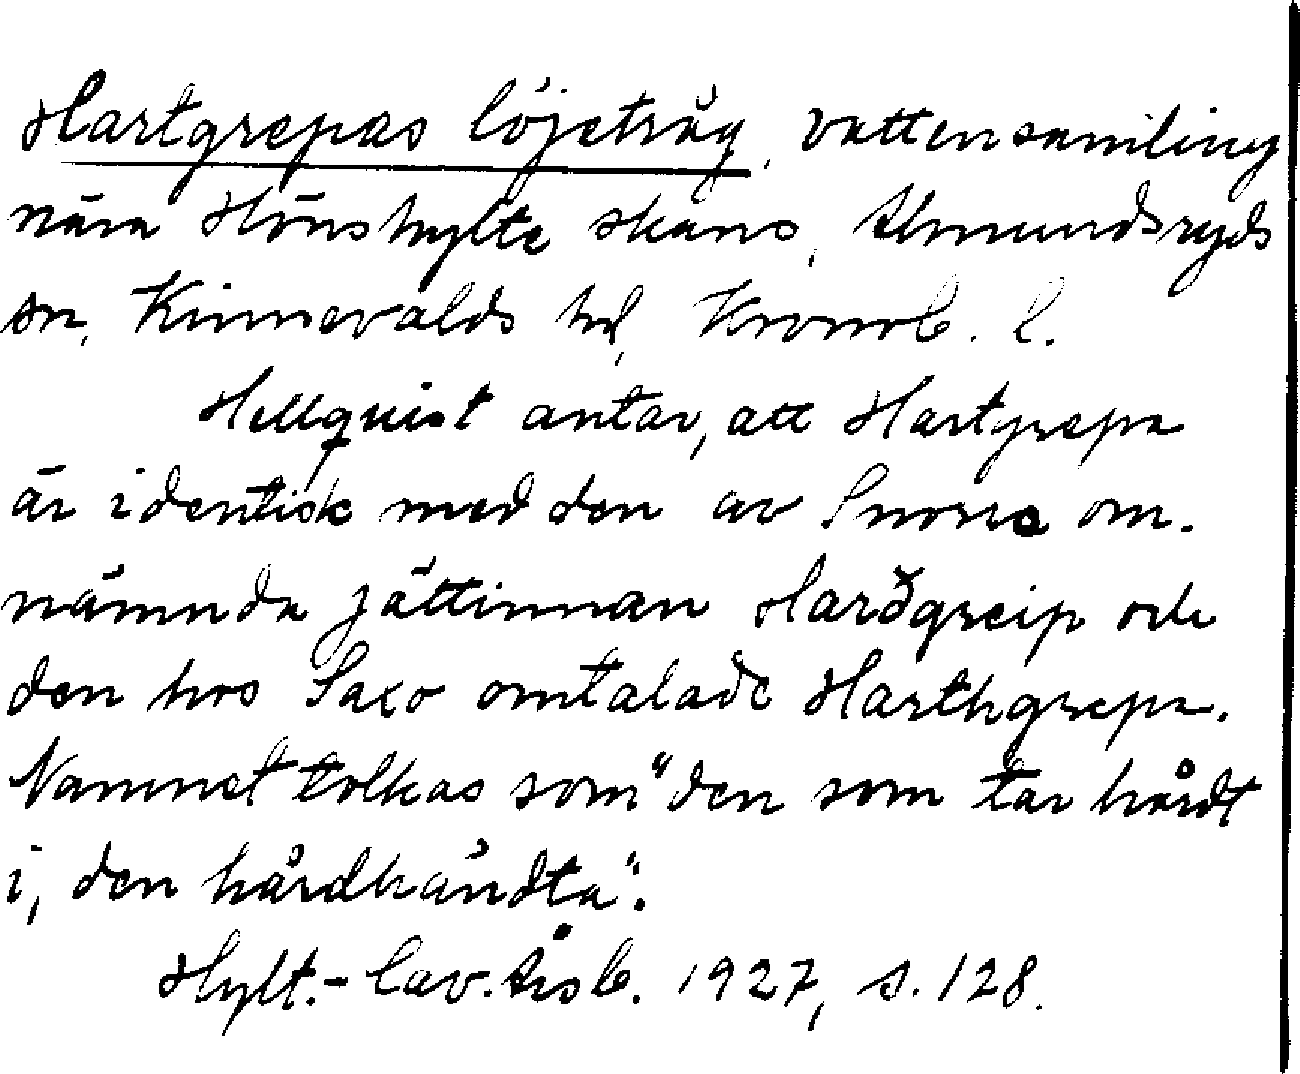 Hartgrepas löjetråg, vattensamling
nära Hönshylte skans, Almundsryds
sn, Kinnevalds hd, Kronob. l.
Hellquist antar, att Hartgrepa
är identisk med den av Snorre om-
nämnda jättinnan Harðgreip och
den hos Saxo omtalade Harthgrepa.
Namnet tolkas som "den som tar hårdt
i, den hårdhändta".
Hylt.-Cav. Årsb. 1927, s. 128.